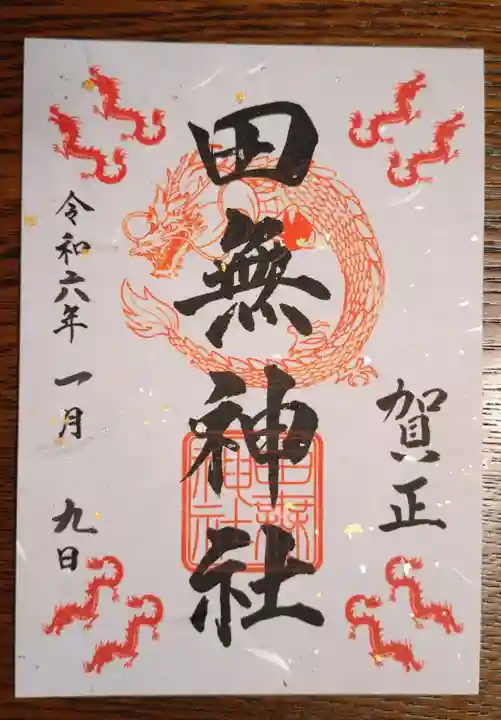 賀正
田無神社
田無神社
令和六年 一月 九日